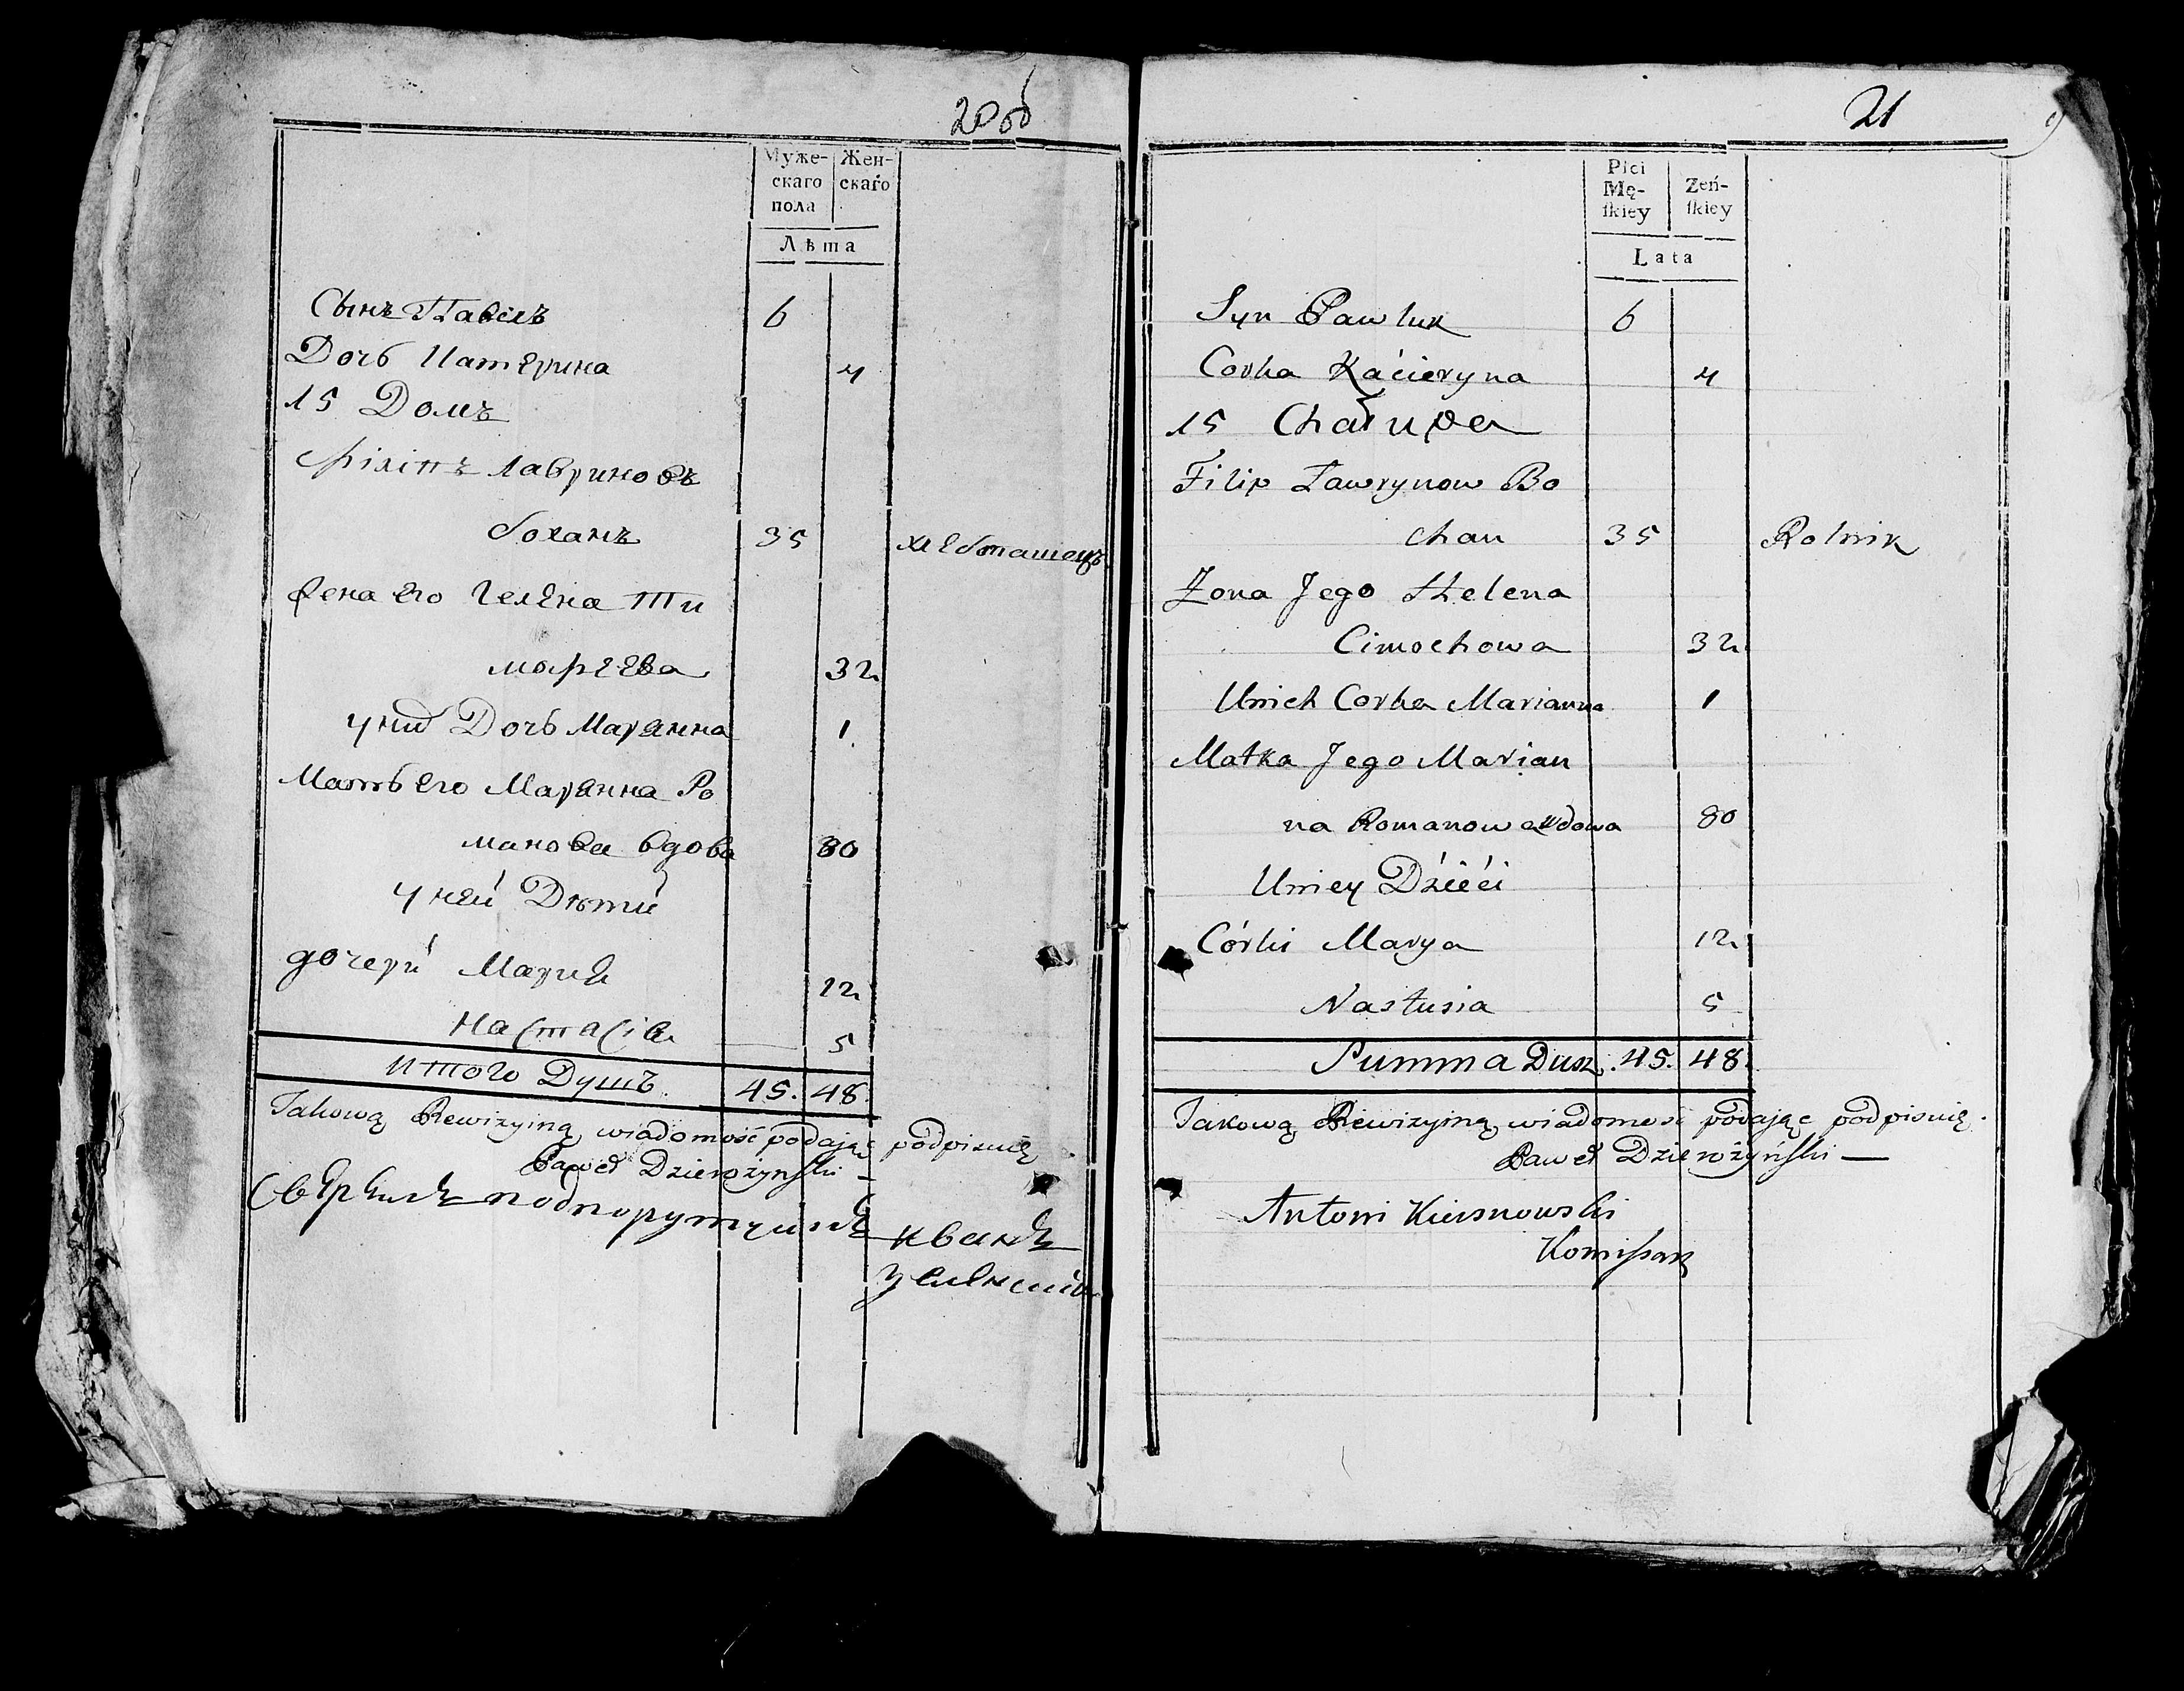 20 об
Муже- Жен-
скаго скаго
пола
Лѣта
Сынъ Павелъ 6
Дочь Катерина 4
15 Домъ
Філіпъ Лавриновъ
боханъ 35 хлебопашецъ
жена его Гелена Ти
мофеева 32
у них Дочь Марянна 1
Мать его Марянна Ро
манова вдова 80
у ней Дѣти
дочери Мария 12
Настасія 5
итого Душъ 45. 48.
Takową Rewizyiną wiadomość podając podpisuię
Paweł Dzierożyński
Сверялъ подпорутчикъ Иванъ
21
Płci Zeń-
Mę- skiey
skiey
Lata
Syn Pawluk 6
Corka Kacieryna 4
15 Chałupa
Filip Ławrynow Bo
chan 35 Rolnik
Żona Jego Helena
Cimochowa 32
Unich Corka Marianna 1
Matka Jego Marian
na Romanowa wdowa 80
Uniey Dzieći
Córki Marya 12
Nastusia 5
Summa Dusz. 45. 48.
Takową Rewizyiną wiadomość podając podpisuię.
Paweł Dzierożyński
Antoni Kiersnowski
Komissarz